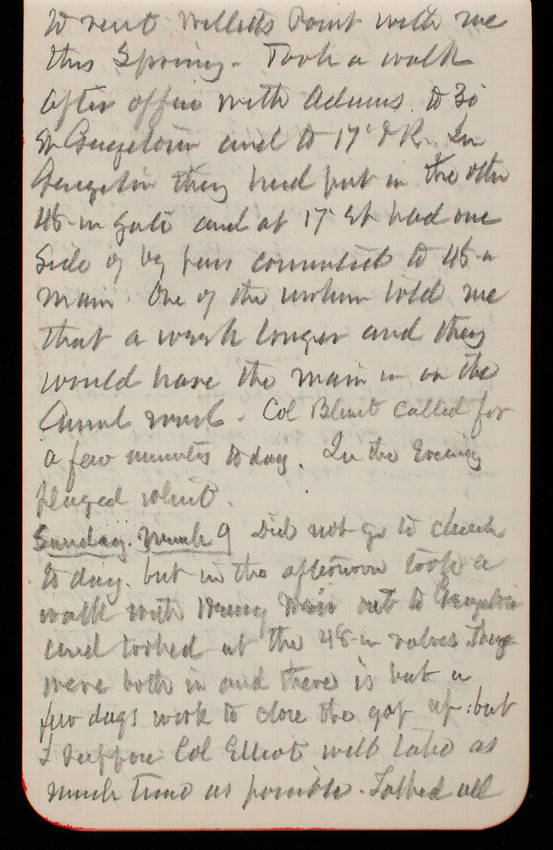 to visit Willetts Point with me
this Spring. Took a walk
after office with Adams. to 30
St Georgetown and to 17' & R. In
Georgetown they had put in the other
48-in gate and at 17 St had one
side of by pass connected to 48-in
main. One of the told me
that a week longer and they
would have the main in on the
Canal road. Col Blunt called for
a few minutes today. In the Evening
played whist.
Sunday. March 9 Did not go to church
to day. but in the afternoon took a
walk with Henry out to Georgetown
and looked at the 48-in valves. They
were both in and there is but a
few days work to close the gap up: but
I suppose Col Elliot will take as
much time as possible. Talked all